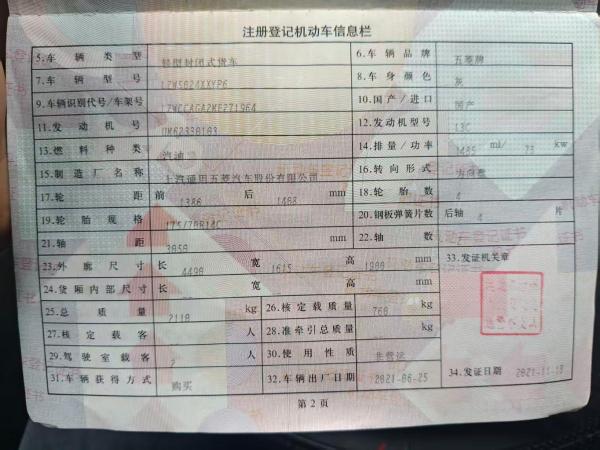 注册登记机动车信息栏
5.车辆类型 轻型封闭式货车 6.车辆品牌 五菱牌
7.车辆型号 8.车身颜色 灰
9.车辆识别代号/车架号 10.国产/进口 国产
11.发动机号 12.发动机型号
13.燃料种类 汽油 14.排量/功率 1485 ml/ 73 kw
15.制造厂名称 上汽通用五菱汽车股份有限公司 16.转向形式 方向盘
17.轮距 前 1386 后 1408 mm 18.轮胎数 4
19.轮胎规格 175/70R14C 20.钢板弹簧片数 后轴 4 片
21.轴距 3050 mm 22.轴数
23.外廓尺寸 长 4490 宽 1615 高 1900 mm 33.发证机关章
24.货厢内部尺寸 长 宽 高 mm
25.总质量 2110 kg 26.核定载质量 760 kg
27.核定载客 人 28.准牵引总质量 kg
29.驾驶室载客 2 人 30.使用性质 非营运
31.车辆获得方式 购买 32.车辆出厂日期 2021-06-25 34.发证日期
第2页